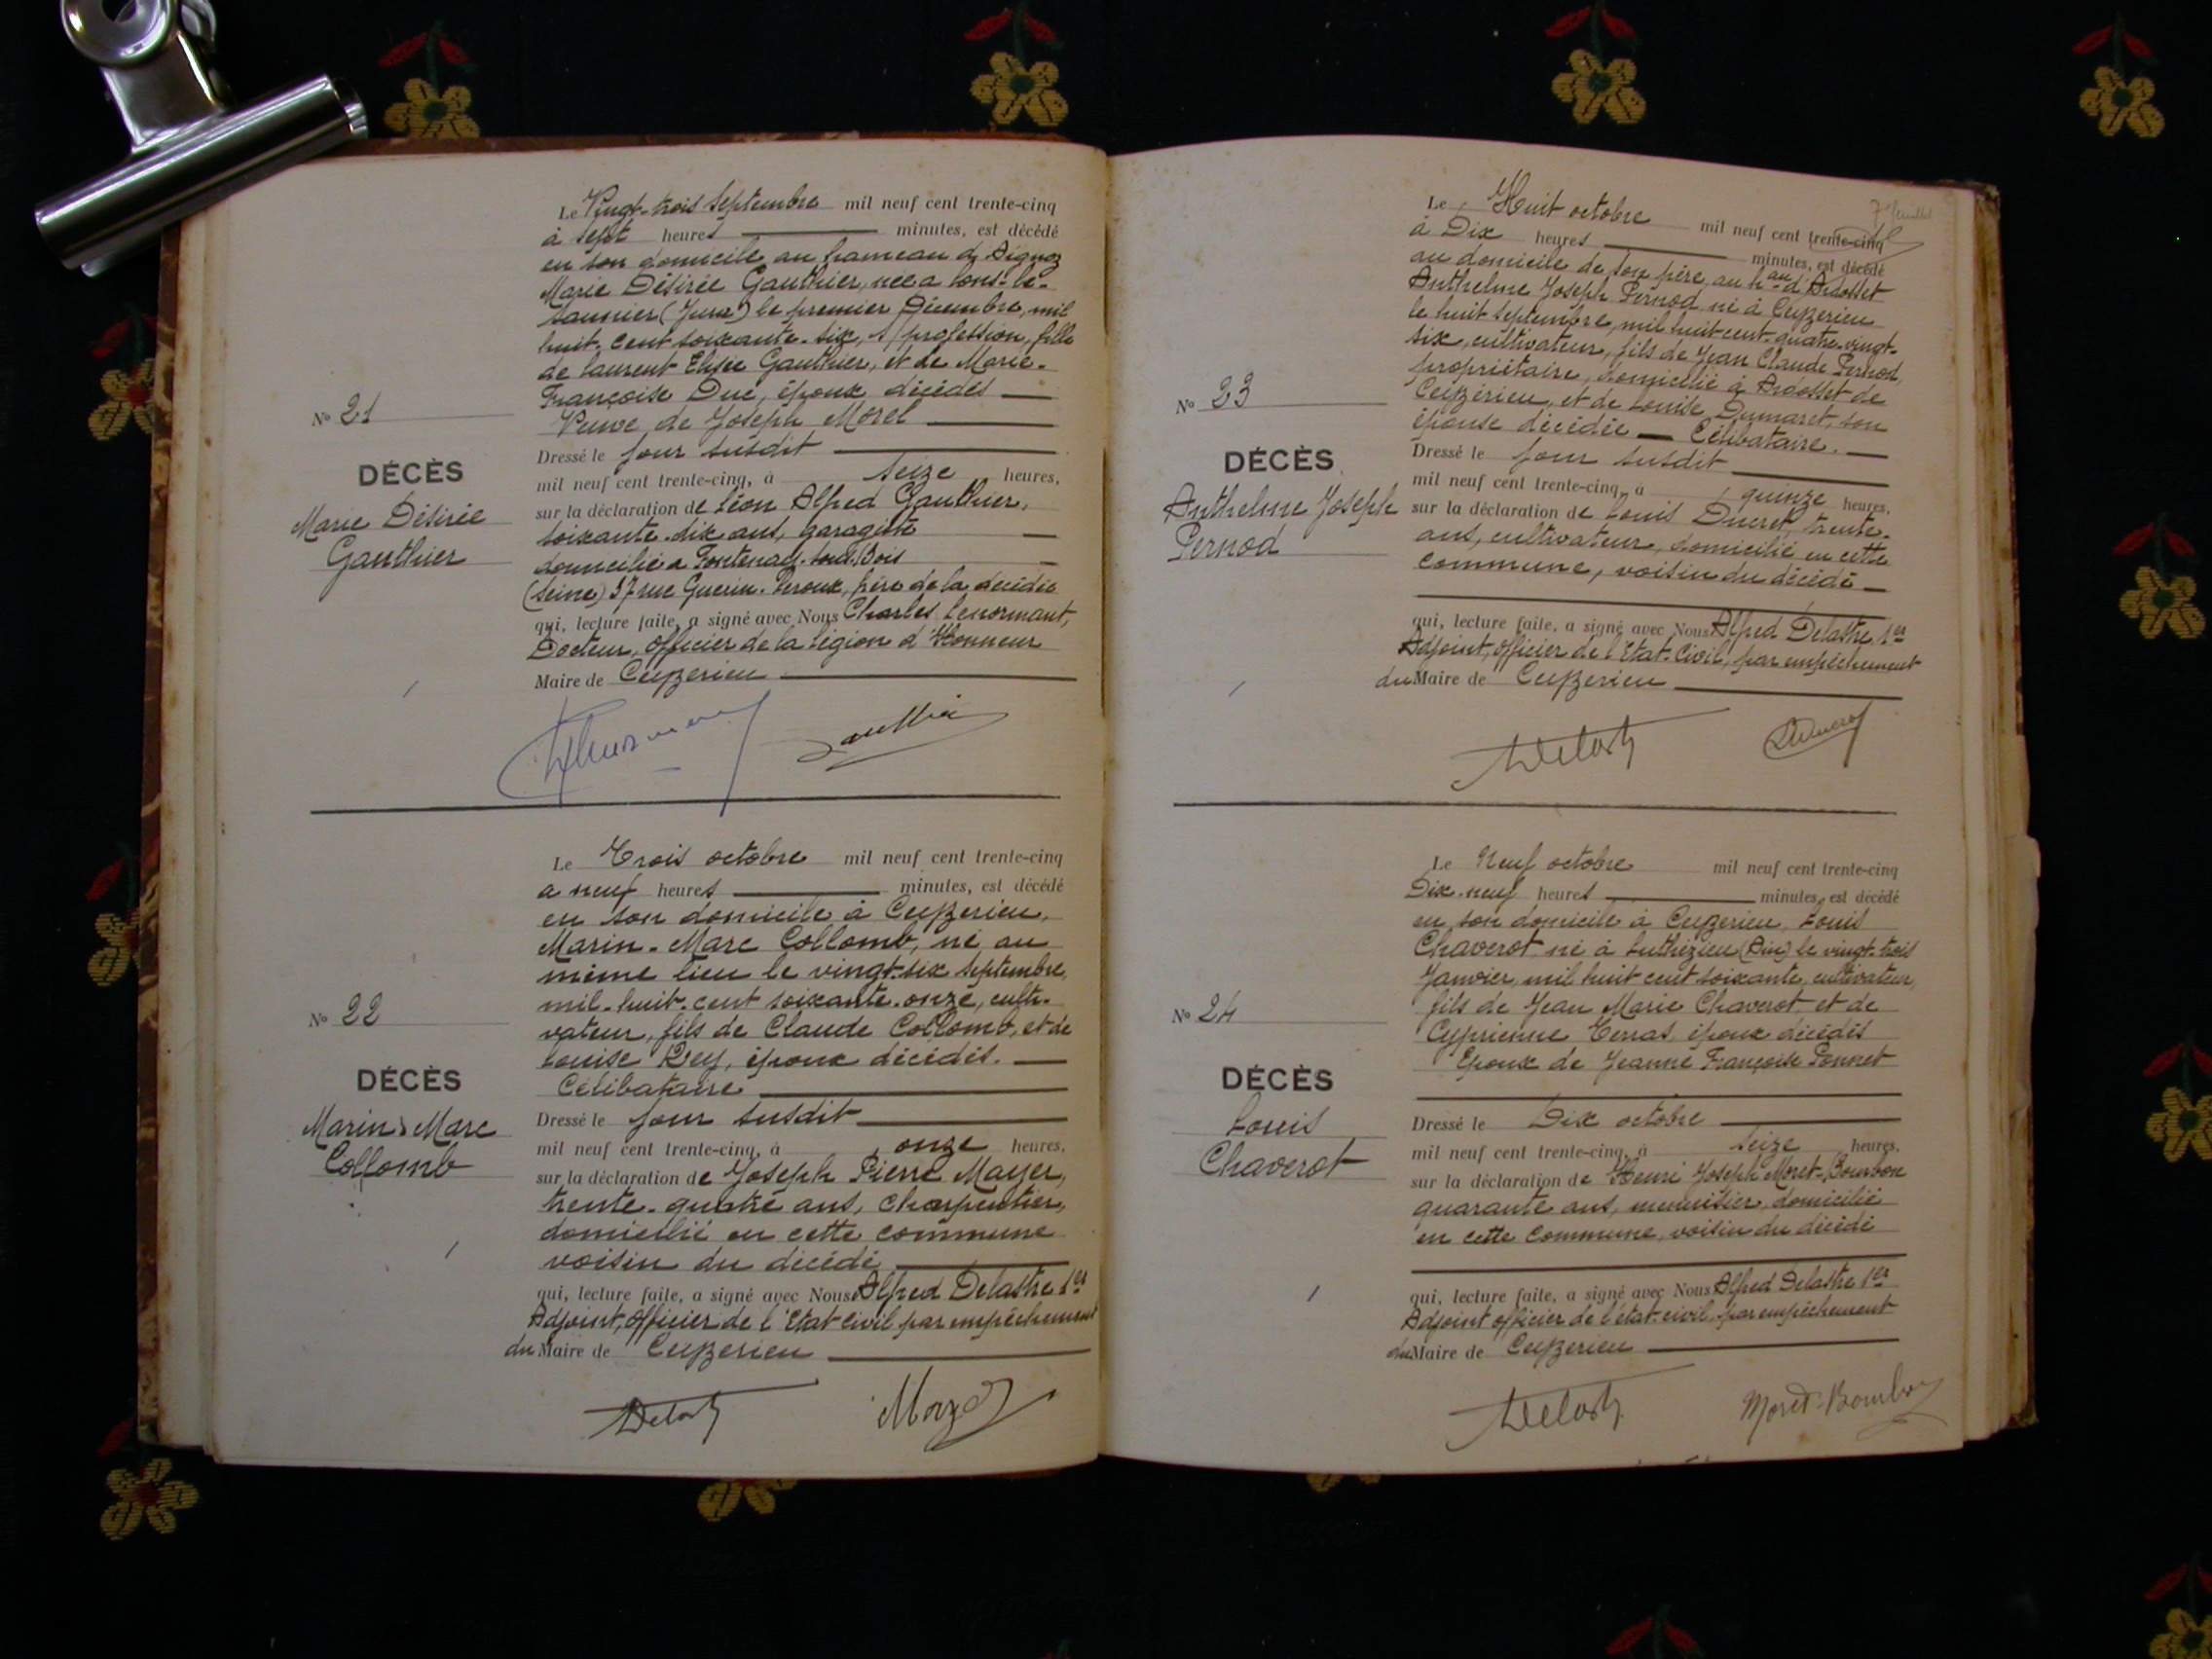 Le Vingt-trois Septembre mil neuf cent trente-cinq
à sept heures minutes, est décédé
en son domicile au hameau d'Aignoz
Marie Désirée Gauthier, née a Lons-le-
Saunier (Jura) le premier Décembre, mil
huit-cent soixante-six, s/profession, fille
de Laurent Elisée Gauthier, et de Marie-
Françoise Duc, époux décédés
Veuve de Joseph Morel
N° 21
DÉCÈS
Marie Désirée
Gauthier
Dressé le jour susdit
mil neuf cent trente-cinq, à seize heures,
sur la déclaration de Léon Alfred Gauthier,
soixante-dix ans, garagiste
domicilié a Fontenay-sous-Bois
(Seine) 57 rue Guerin-Leroux, frère de la décédée
qui, lecture faite, a signé avec Nous Charles Lenormant,
Docteur, Officier de la Légion d'Honneur
Maire de Ceyzerieu
Gauthier
Le Trois octobre mil neuf cent trente-cinq
a neuf heures minutes, est décédé
en son domicile à Ceyzerieu,
Marin-Marc Collomb, né au
même lieu le vingt-six septembre
mil-huit-cent soixante-onze, culti-
vateur, fils de Claude Collomb, et de
Louise Rey, époux décédés.
Célibataire
N° 22
DÉCÈS
Marin-Marc
Collomb
Dressé le jour susdit
mil neuf cent trente-cinq, à onze heures,
sur la déclaration de Joseph Pierre Mayer,
trente-quatre ans, Charpentier,
domicilié en cette commune
voisin du décédé
qui, lecture faite, a signé avec Nous Alfred Delastre 1er
Adjoint, Officier de l'Etat Civil par empêchement
du Maire de Ceyzerieu
7e feuillet
Le Huit octobre mil neuf cent trente-cinq
à Dix heures minutes, est décédé
au domicile de son père, au hau d'Ardosset
Anthelme Joseph Pernod né à Ceyzerieu
le huit Septembre, mil huit cent-quatre-vingt-
six, cultivateur, fils de Jean Claude Pernod,
propriétaire, domicilié à Ardosset de
Ceyzérieu, et de Louise Dumaret, son
épouse décédée — Célibataire.
N° 23
DÉCÈS
Anthelme Joseph
Pernod
Dressé le jour susdit
mil neuf cent trente-cinq, à quinze heures,
sur la déclaration de Louis Ducret, trente-
ans, cultivateur, domicilié en cette
commune, voisin du décédé
qui, lecture faite, a signé avec Nous Alfred Delastre, 1er
Adjoint, Officier de l'Etat-Civil, par empêchement
du Maire de Ceyzerieu
Le Neuf octobre mil neuf cent trente-cinq
Dix-neuf heures minutes, est décédé
en son domicile à Ceyzerieu, Louis
Chaverot né à Luthézieu (Ain) le vingt-trois
Janvier mil huit cent soixante, cultivateur,
fils de Jean Marie Chaverot et de
Cyprienne Terras, époux décédés
Epoux de Jeanne Françoise Ponnet
N° 24
DÉCÈS
Louis
Chaverot
Dressé le Dix octobre
mil neuf cent trente-cinq, à seize heures,
sur la déclaration de Henri Joseph Moret-Bourbon
quarante ans, menuisier, domicilié
en cette commune, voisin du décédé
qui, lecture faite, a signé avec Nous Alfred Delastre 1er
Adjoint officier de l'état-civil, par empêchement
du Maire de Ceyzerieu
Moret-Bourbon